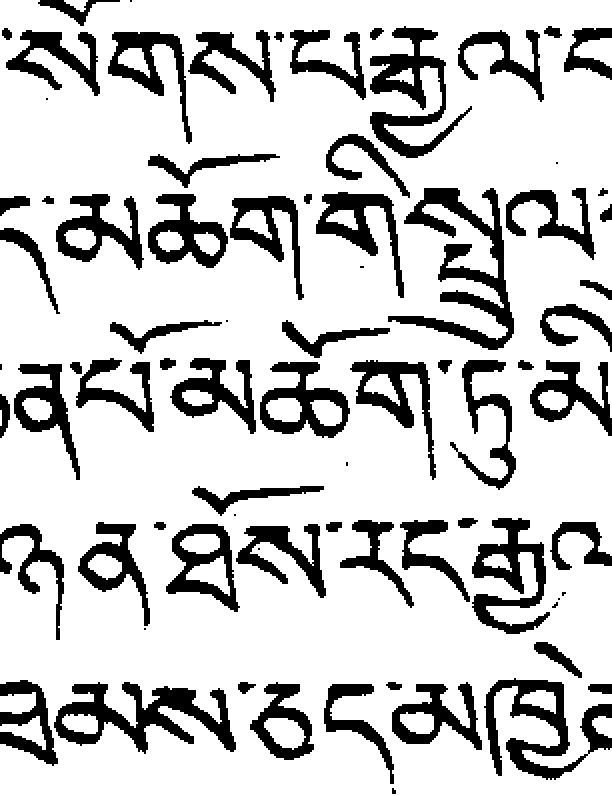 སོགས་པ་རྒྱལ་
ད་མཆོག་གི་སྤྲུལ་
ན་པོ་མཆོག་ཏུ་མི
ཉན་ཐོས་རང་རྒྱལ
ཐམས་ཅད་མཁྱེ